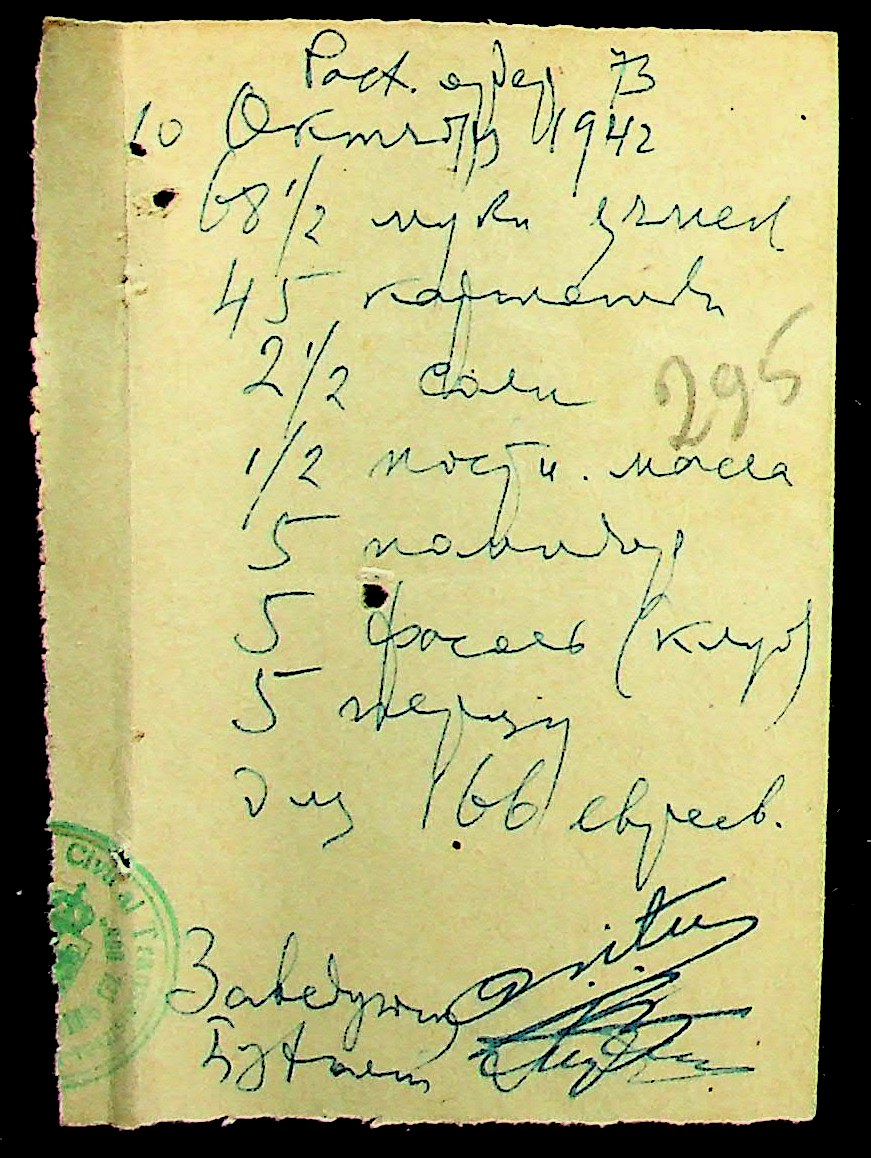 Расх. ордер 73
10 Октября 1942
68 1/2 муки ячмен.
45 картошки
2 1/2 соли
295
1/2 постн. масла
5 помидор
5 фасоль (клуб)
5 перцу
для 166 евреев.
Civil al Tran
Заведующий
Бухгалт